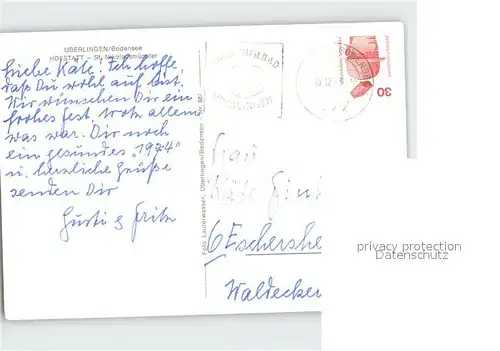 ÜBERLINGEN/Bodensee
HOFSTATT – St. Nikolausmünster
Liebe Käte, Ich hoffe,
daß Du wohl auf bist.
Wir wünschen Dir ein
frohes Fest, trotz allem
was war. Dir noch
ein gesundes "1974"
u. herzliche Grüße
senden Dir
Gusti & Fritz
Foto Lauterwasser, Überlingen/Bodensee
30
Frau
6 Eschershe
Waldecker
privacy protection
Datenschutz